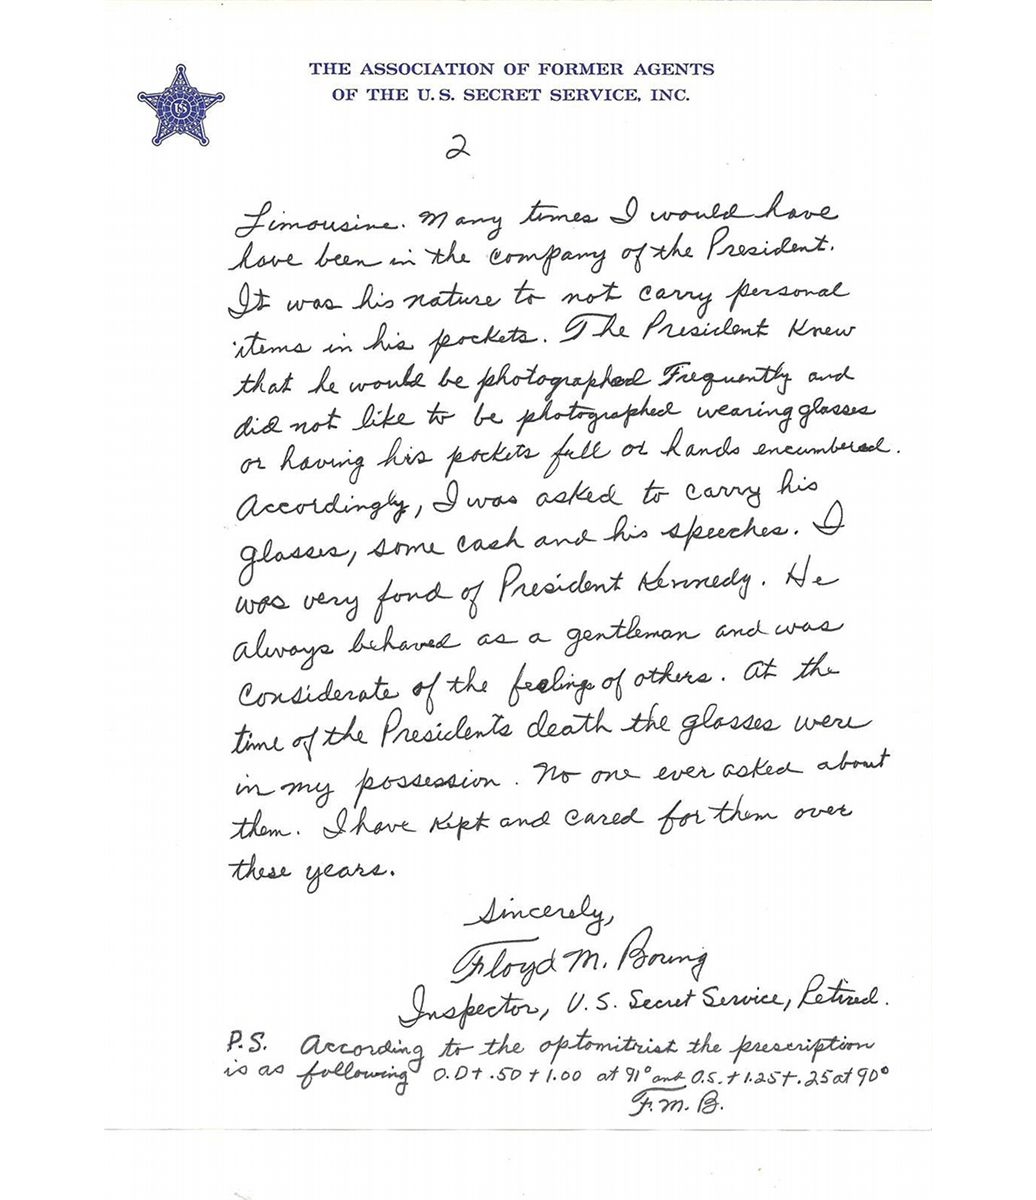 THE ASSOCIATION OF FORMER AGENTS
OF THE U.S. SECRET SERVICE, INC.
US
2
Limousine. Many times I would have
have been in the company of the President.
It was his nature to not carry personal
items in his pockets. The President Knew
that he would be photographed Frequently and
did not like to be photographed wearing glasses
or having his pockets full or hands encumbered.
Accordingly, I was asked to carry his
glasses, some cash and his speeches. I
was very fond of President Kennedy. He
always behaved as a gentleman and was
considerate of the feelings of others. At the
time of the President's death the glasses were
in my possession. No one ever asked about
them. I have kept and cared for them over
these years.
Sincerely,
Floyd M. Boring
Inspector, U.S. Secret Service, Retired.
P.S. According to the optomitrist the prescription
is as following O.D + .50 + 1.00 at 91° and O.S. + 1.25 + .25 at 90°
F.M.B.